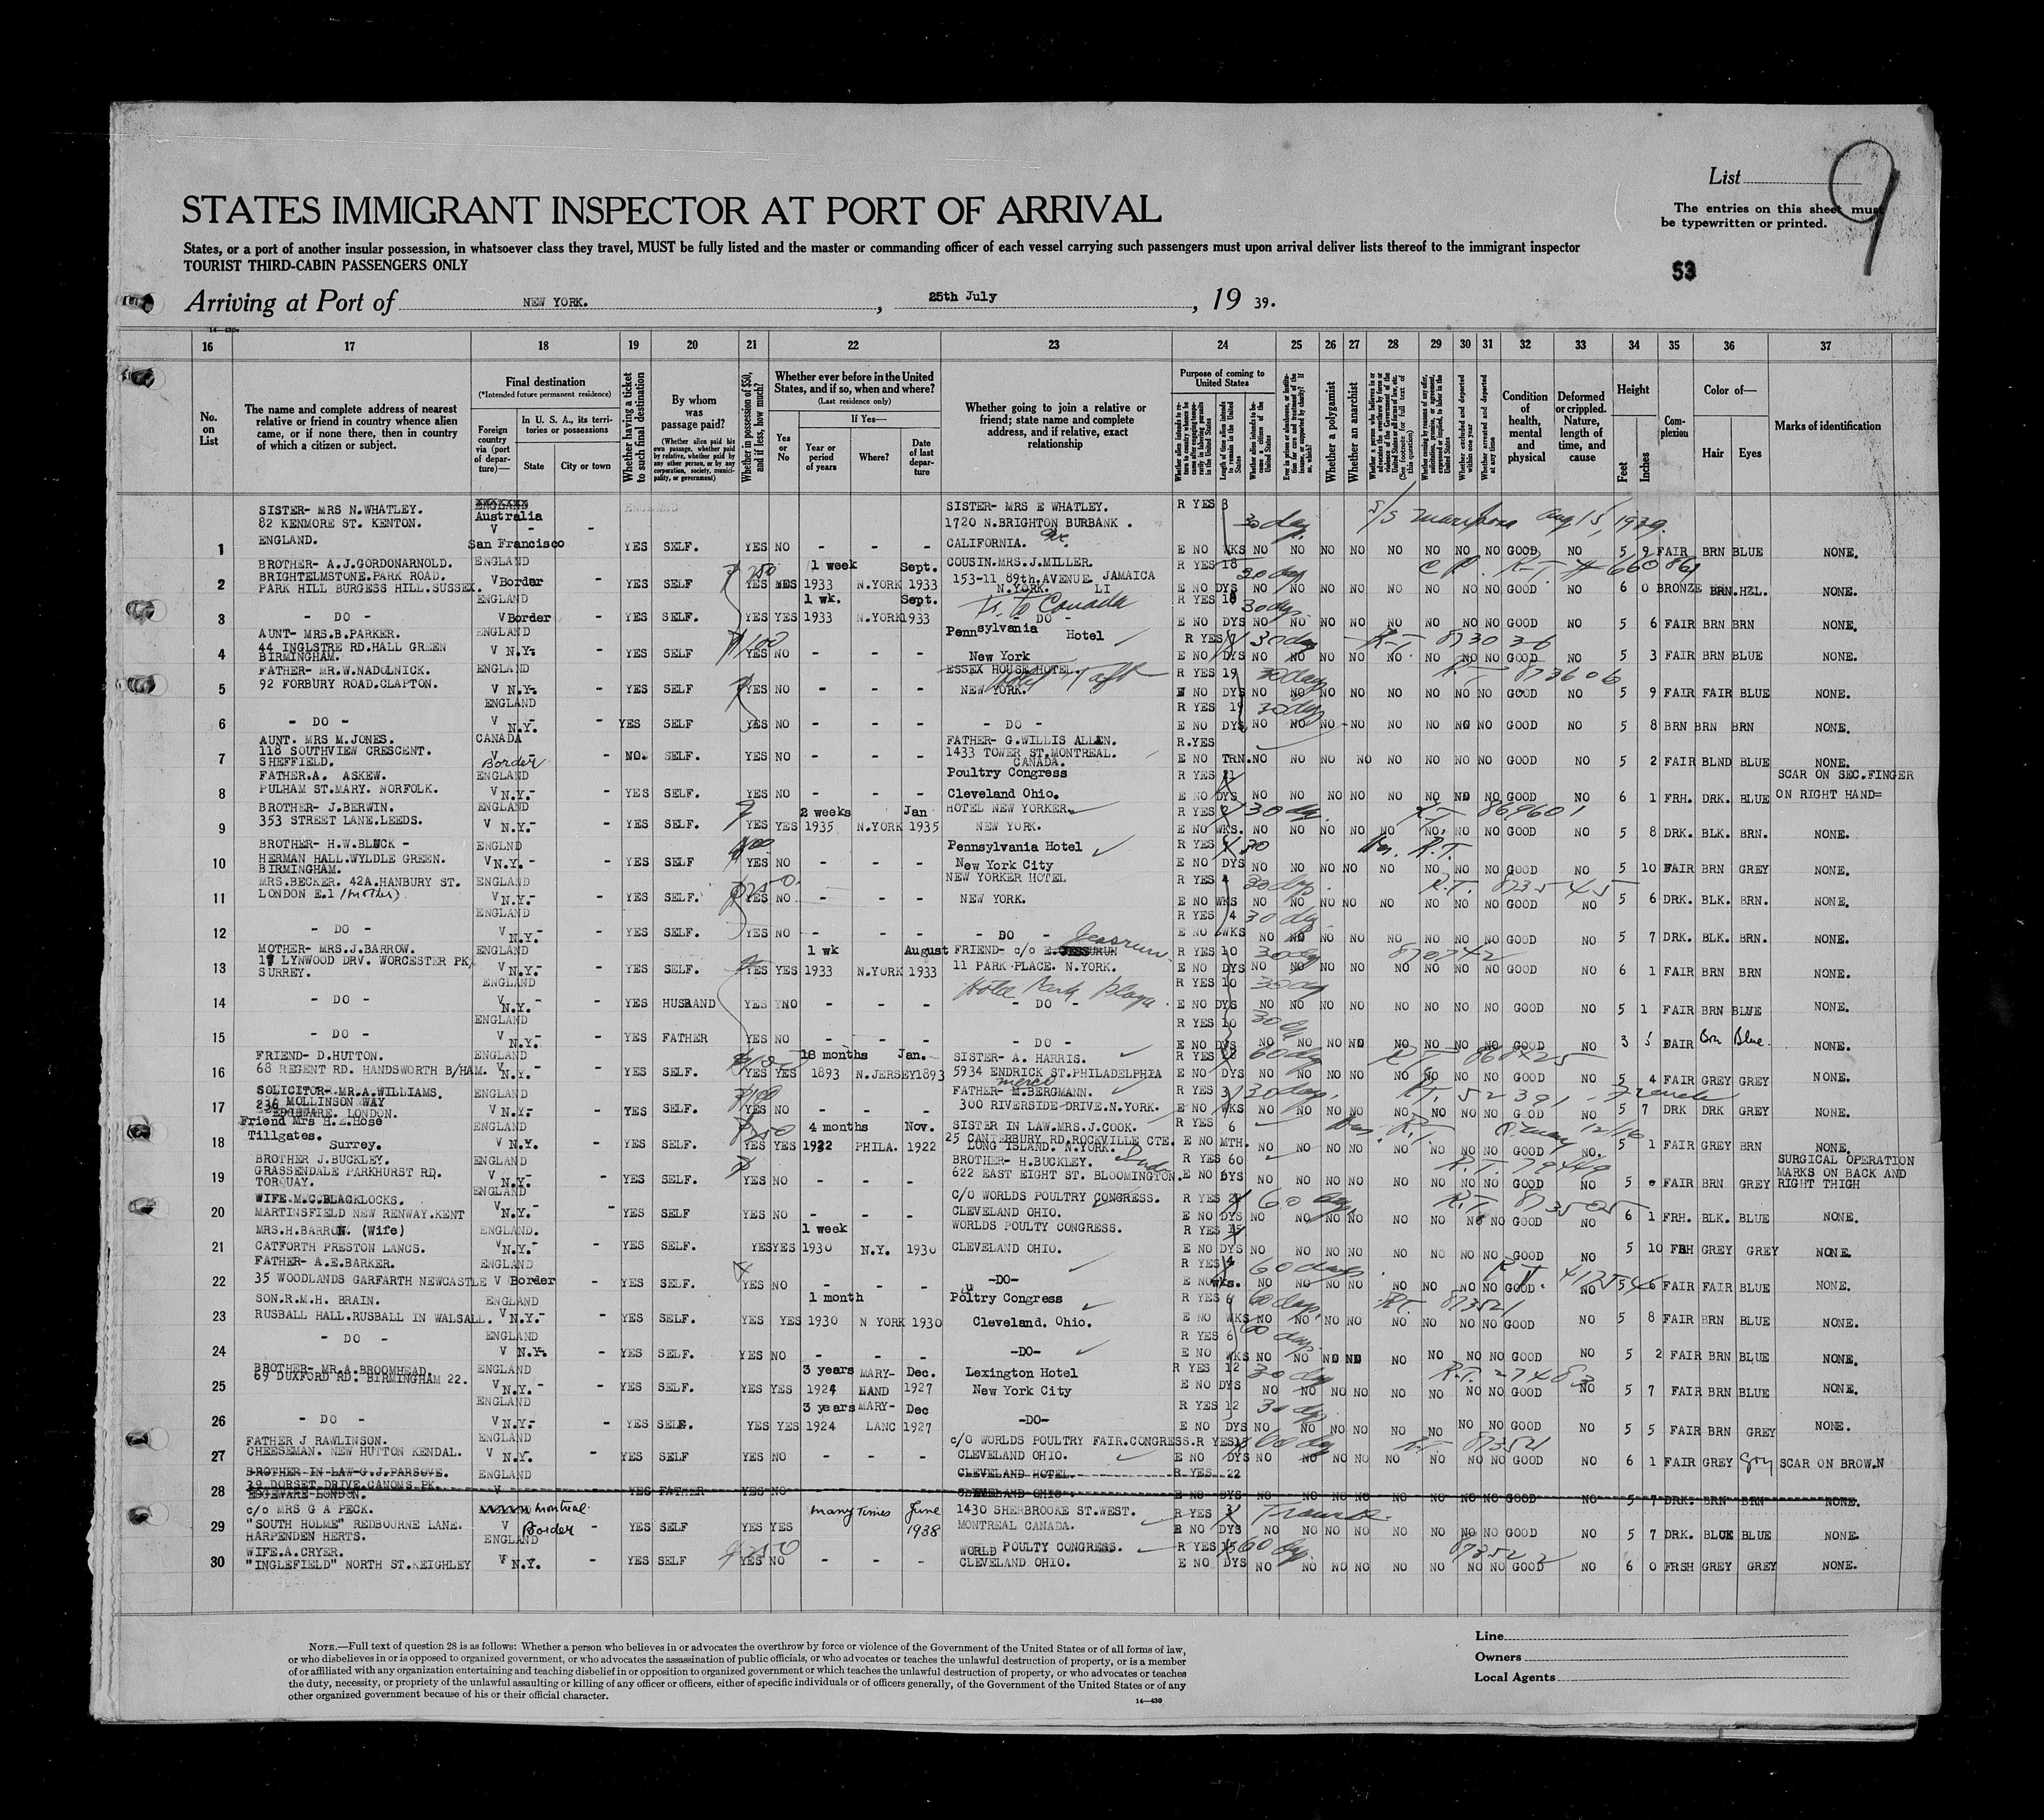 List 9
The entries on this sheet must
be typewritten or printed.
STATES IMMIGRANT INSPECTOR AT PORT OF ARRIVAL
States, or a port of another insular possession, in whatsoever class they travel, MUST be fully listed and the master or commanding officer of each vessel carrying such passengers must upon arrival deliver lists thereof to the immigrant inspector
TOURIST THIRD-CABIN PASSENGERS ONLY
53
Arriving at Port of NEW YORK. , 25th July , 19 39.
16 17 18 19 20 21 22 23 24 25 26 27 28 29 30 31 32 33 34 35 36 37
No. on List
The name and complete address of nearest relative or friend in country whence alien came, or if none there, then in country of which a citizen or subject.
Final destination
(*Intended future permanent residence)
Foreign country via (port of departure)—
In U. S. A., its territories or possessions
State
City or town
Whether having a ticket to such final destination
By whom was passage paid?
(Whether alien paid his own passage, whether paid by relative, whether paid by any other person, or by any corporation, society, municipality, or government)
Whether in possession of $50, and if less, how much?
Whether ever before in the United States, and if so, when and where?
(Last residence only)
Yes or No
If Yes—
Year or period of years
Where?
Date of last departure
Whether going to join a relative or friend; state name and complete address, and if relative, exact relationship
Purpose of coming to United States
Whether a polygamist
Whether an anarchist
Condition of health, mental and physical
Deformed or crippled. Nature, length of time, and cause
Height
Feet
Inches
Complexion
Color of—
Hair
Eyes
Marks of identification
SISTER- MRS N.WHATLEY. Australia SISTER- MRS E WHATLEY. R YES 3
82 KENMORE ST. KENTON. V - - 1720 N.BRIGHTON BURBANK . 30 day S/S Mariposa Aug 15, 1939.
1 ENGLAND. San Francisco YES SELF. YES NO - - - CALIFORNIA. E NO WKS NO NO NO NO NO NO NO NO GOOD NO 5 9 FAIR BRN BLUE NONE.
BROTHER- A.J.GORDONARNOLD. ENGLAND 1 week Sept. COUSIN.MRS.J.MILLER. R YES 18
2 BRIGHTELMSTONE.PARK ROAD. V Border - YES SELF YES 1933 N.YORK 1933 153-11 89th.AVENUE JAMAICA 30 day
PARK HILL BURGESS HILL.SUSSEX. N.YORK. LI E NO DYS NO NO NO NO NO NO NO NO GOOD NO 6 0 BRONZE BRN.HZL. NONE.
ENGLAND 1 wk. Sept. R YES 18 30 dys
3 - DO - V Border - YES SELF. YES YES 1933 N.YORK 1933 - DO - E NO DYS NO NO NO NO NO NO NO NO GOOD NO 5 6 FAIR BRN BRN NONE.
to Canada
AUNT- MRS.B.PARKER. ENGLAND $100 Pennsylvania Hotel R YES 30 day R.T. 873036
4 44 INGLSTRE RD.HALL GREEN V N.Y. - YES SELF YES NO - - - New York E NO DYS NO NO NO NO NO NO NO NO GOOD NO 5 3 FAIR BRN BLUE NONE.
BIRMINGHAM.
FATHER- MR.W.NADOLNICK. ENGLAND ESSEX HOUSE HOTEL. Hotel Taft R YES 19 30 day R.T. 873606
5 92 FORBURY ROAD.CLAPTON. V N.Y. - YES SELF YES NO - - - NEW YORK. NO DYS NO NO NO NO NO NO NO NO GOOD NO 5 9 FAIR FAIR BLUE NONE.
ENGLAND R YES 19 30 dys
6 - DO - V N.Y. - YES SELF YES NO - - - - DO - E NO DYS NO NO NO NO NO NO NO NO GOOD NO 5 8 BRN BRN BRN NONE.
AUNT. MRS M.JONES. CANADA FATHER- G.WILLIS ALLEN. R.YES
7 118 SOUTHVIEW CRESCENT. V Border - NO. SELF. YES NO - - - 1433 TOWER ST.MONTREAL. E NO TRN.NO NO NO NO NO NO NO NO GOOD NO 5 2 FAIR BLND BLUE NONE.
SHEFFIELD. CANADA.
FATHER.A. ASKEW. ENGLAND Poultry Congress R YES 21 SCAR ON SEC.FINGER
8 PULHAM ST.MARY. NORFOLK. V N.Y. - YES SELF. YES NO - - - Cleveland Ohio. E NO DYS NO NO NO NO NO NO NO NO GOOD NO 6 1 FRH. DRK. BLUE ON RIGHT HAND=
BROTHER- J.BERWIN. ENGLAND 2 weeks Jan HOTEL NEW YORKER R YES 30 day R.T. 869601
9 353 STREET LANE.LEEDS. V N.Y. - YES SELF. YES YES 1935 N.YORK 1935 NEW YORK. E NO WKS. NO NO NO NO NO NO NO NO GOOD NO 5 8 DRK. BLK. BRN. NONE.
BROTHER- H.W.BLACK - ENGLND Pennsylvania Hotel R YES 30 R.T.
10 HERMAN HALL.WYLDLE GREEN. V N.Y. - YES SELF YES NO - - - New York City E NO DYS NO NO NO NO NO NO NO NO GOOD NO 5 10 FAIR BRN GREY NONE.
BIRMINGHAM.
MRS.BECKER. 42A.HANBURY ST. ENGLAND $250. NEW YORKER HOTEL R YES 4 30 dys. R.T. 873545
11 LONDON E.1 (mother) V N.Y. - YES SELF. YES NO - - - NEW YORK. E NO WKS NO NO NO NO NO NO NO NO GOOD NO 5 6 DRK. BLK. BRN. NONE.
ENGLAND R YES 4 30 dy
12 - DO - V N.Y. - YES SELF. YES NO - - - - DO - E NO WKS NO NO NO NO NO NO NO NO GOOD NO 5 7 DRK. BLK. BRN. NONE.
MOTHER- MRS.J.BARROW. ENGLAND 1 wk August FRIEND- c/o E. Jessrun R YES 10 30 dy 870742
13 LYNWOOD DRV. WORCESTER PK, V N.Y. - YES SELF. YES YES 1933 N.YORK 1933 11 PARK PLACE. N.YORK. E NO DYS NO NO NO NO NO NO NO NO GOOD NO 6 1 FAIR BRN BRN NONE.
SURREY.
ENGLAND Hotel Park Plaza R YES 10 30 dy
14 - DO - V N.Y. - YES HUSBAND YES NO - - - - DO - E NO DYS NO NO NO NO NO NO NO NO GOOD NO 5 1 FAIR BRN BLUE NONE.
ENGLAND R YES 10 30 dy
15 - DO - V N.Y. - YES FATHER YES NO - - - - DO - E NO DYS NO NO NO NO NO NO NO NO GOOD NO 3 5 FAIR Brn Blue. NONE.
FRIEND- D.HUTTON. ENGLAND 18 months Jan. SISTER- A. HARRIS. R YES 28 60 dys R.T. 868825
16 68 REGENT RD. HANDSWORTH B/HAM. V N.Y. - YES SELF. YES YES 1893 N.JERSEY 1893 5934 ENDRICK ST.PHILADELPHIA E NO DYS NO NO NO NO NO NO NO NO GOOD NO 5 4 FAIR GREY GREY NONE.
SOLICITOR- MR.A.WILLIAMS. ENGLAND $100 FATHER- M.BERGMANN. R YES 3 30 days. R.T. 52391 - French
17 236 MOLLINSON WAY V N.Y. - YES SELF. YES NO - - - 300 RIVERSIDE DRIVE.N.YORK. E NO WKS NO NO NO NO NO NO NO NO GOOD NO 5 7 DRK DRK GREY NONE.
EDGEWARE. LONDON.
Friend Mrs H.E.Hose ENGLAND $250 4 months Nov. SISTER IN LAW.MRS.J.COOK. R YES 6 R.T.
18 Tillgates. V N.Y. - YES SELF. YES YES 1922 PHILA. 1922 25 CANTERBURY RD.ROCKVILLE CTE. E NO MTH. NO NO NO NO NO NO NO NO GOOD NO. 5 1 FAIR GREY BRN NONE.
Surrey. LONG ISLAND. N.YORK.
BROTHER J.BUCKLEY. ENGLAND BROTHER- H.BUCKLEY. Ind R YES 60 R.T. 79449 SURGICAL OPERATION
19 GRASSENDALE PARKHURST RD. V N.Y. - YES SELF. YES NO - - - 622 EAST EIGHT ST. BLOOMINGTON. E NO DYS NO NO NO NO NO NO NO NO GOOD NO 5 FAIR BRN GREY MARKS ON BACK AND
TORQUAY. RIGHT THIGH
WIFE.M.C.BLACKLOCKS. ENGLAND C/O WORLDS POULTRY CONGRESS. R YES 60 days R.T. 873505
20 MARTINSFIELD NEW RENWAY.KENT V N.Y. - YES SELF YES NO - - - CLEVELAND OHIO. E NO DYS NO NO NO NO NO NO NO NO GOOD NO 6 1 FRH. BLK. BLUE NONE.
MRS.H.BARRON. (Wife) ENGLAND. 1 week WORLDS POULTY CONGRESS. R YES 15
21 CATFORTH PRESTON LANCS. V N.Y. - YES SELF. YES YES 1930 N.Y. 1930 CLEVELAND OHIO. E NO DYS NO NO NO NO NO NO NO NO GOOD NO 5 10 FRH GREY GREY NONE.
FATHER- A.E.BARKER. ENGLAND R YES 4 60 days R.T.
22 35 WOODLANDS GARFARTH NEWCASTLE V Border - YES SELF. YES NO - - - -DO- E NO wks. NO NO NO NO NO NO NO NO GOOD NO FAIR FAIR BLUE NONE.
SON.R.M.H. BRAIN. ENGLAND 1 month Poultry Congress R YES 6 60 days R.T. 873521
23 RUSBALL HALL.RUSBALL IN WALSALL. V N.Y. - YES SELF. YES YES 1930 N YORK 1930 Cleveland. Ohio. E NO WKS NO NO NO NO NO NO NO NO GOOD NO 5 8 FAIR BRN BLUE NONE.
ENGLAND R YES 6 60 days
24 - DO - V N.Y. - YES SELF. YES NO - - - -DO- E NO WKS NO NO NO NO NO NO NO NO GOOD NO 5 2 FAIR BRN BLUE NONE.
BROTHER- MR.A.BROOMHEAD. ENGLAND 3 years MARY- Dec. Lexington Hotel R YES 12 30 dys R.T. 27483
25 69 DUXFORD RD. BIRMINGHAM 22. V N.Y. - YES SELF. YES YES 1924 LAND 1927 New York City E NO DYS NO NO NO NO NO NO NO NO GOOD NO 5 7 FAIR BRN BLUE NONE.
ENGLAND 3 years MARY- Dec R YES 12 30 dys
26 - DO - V N.Y. - YES SELF. YES YES 1924 LANC 1927 -DO- E NO DYS NO NO NO NO NO NO NO NO GOOD NO 5 5 FAIR BRN GREY NONE.
FATHER J RAWLINSON. ENGLAND c/o WORLDS POULTRY FAIR.CONGRESS. R YES 60 dys R.T. 87352
27 CHEESEMAN. NEW HUTTON KENDAL. V N.Y. - YES SELF YES NO - - - CLEVELAND OHIO. E NO DYS NO NO NO NO NO NO NO NO GOOD NO 6 1 FAIR GREY Gry SCAR ON BROW.N
BROTHER-IN-LAW-G.J.PARSOVE. ENGLAND CLEVELAND HOTEL. R YES 22
28 39 DORSET DRIVE.CANONS PK. V YES FATHER YES NO CLEVELAND OHIO. E NO DYS NO NO NO NO NO NO NO NO GOOD NO 5 7 DRK. BRN BRN NONE.
EDGEWARE LONDON.
c/o MRS G A PECK. Montreal many Times June 1430 SHERBROOKE ST.WEST. R YES 3 Transit
29 "SOUTH HOLME" REDBOURNE LANE. V Border - YES SELF YES YES 1938 MONTREAL CANADA. NO DYS NO NO NO NO NO NO NO NO GOOD NO 5 7 DRK. BLUE BLUE NONE.
HARPENDEN HERTS. ENGLAND
WIFE.A.CRYER. $250 WORLD POULTY CONGRESS. R YES 60 dys. 873522
30 "INGLEFIELD" NORTH ST.KEIGHLEY V N.Y. - YES SELF YES NO - - - CLEVELAND OHIO. E NO DYS NO NO NO NO NO NO NO NO GOOD NO 6 0 FRSH GREY GREY NONE.
NOTE.—Full text of question 28 is as follows: Whether a person who believes in or advocates the overthrow by force or violence of the Government of the United States or of all forms of law,
or who disbelieves in or is opposed to organized government, or who advocates the assassination of public officials, or who advocates or teaches the unlawful destruction of property, or is a member
of or affiliated with any organization entertaining and teaching disbelief in or opposition to organized government or which teaches the unlawful destruction of property, or who advocates or teaches
the duty, necessity, or propriety of the unlawful assaulting or killing of any officer or officers, either of specific individuals or of officers generally, of the Government of the United States or of any
other organized government because of his or their official character.
14—430
Line
Owners
Local Agents